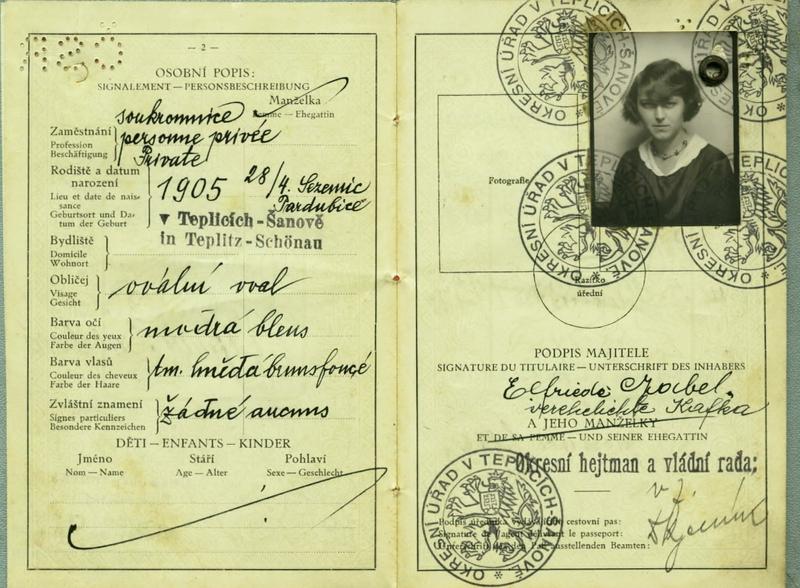 — 2 —
OSOBNÍ POPIS:
SIGNALEMENT — PERSONSBESCHREIBUNG
Manželka
Femme — Ehegattin
Zaměstnání
Profession
Beschäftigung
soukromnice
personne privée
Private
Rodiště a datum
narození
Lieu et date de nais-
sance
Geburtsort und Da-
tum der Geburt
1905 28/4. Sezemic
Pardubice
v Teplicích-Šanově
in Teplitz-Schönau
Bydliště
Domicile
Wohnort
Obličej
Visage
Gesicht
ovální oval
Barva očí
Couleur des yeux
Farbe der Augen
modrá bleus
Barva vlasů
Couleur des cheveux
Farbe der Haare
tm. hnědá bruns foncé
Zvláštní znamení
Signes particuliers
Besondere Kennzeichen
žádné aucuns
DĚTI — ENFANTS — KINDER
Jméno Stáří Pohlaví
Nom — Name Age — Alter Sexe — Geschlecht
OKRESNÍ ÚŘAD V TEPLICÍCH-ŠANOVĚ
Fotografie
OKRESNÍ ÚŘAD V TEPLICÍCH-ŠANOVĚ
Razítko
úřední
PODPIS MAJITELE
SIGNATURE DU TITULAIRE — UNTERSCHRIFT DES INHABERS
Elfriede
verehelichte Kafka
A JEHO MANŽELKY
ET DE SA FEMME — UND SEINER EHEGATTIN
Okresní hejtman a vládní rada:
OKRESNÍ ÚŘAD V TEPLICÍCH-ŠANOVĚ
Podpis úředníka cestovní pas:
Signature de l'agent délivrant le passeport:
Unterschrift des den Paß ausstellenden Beamten: